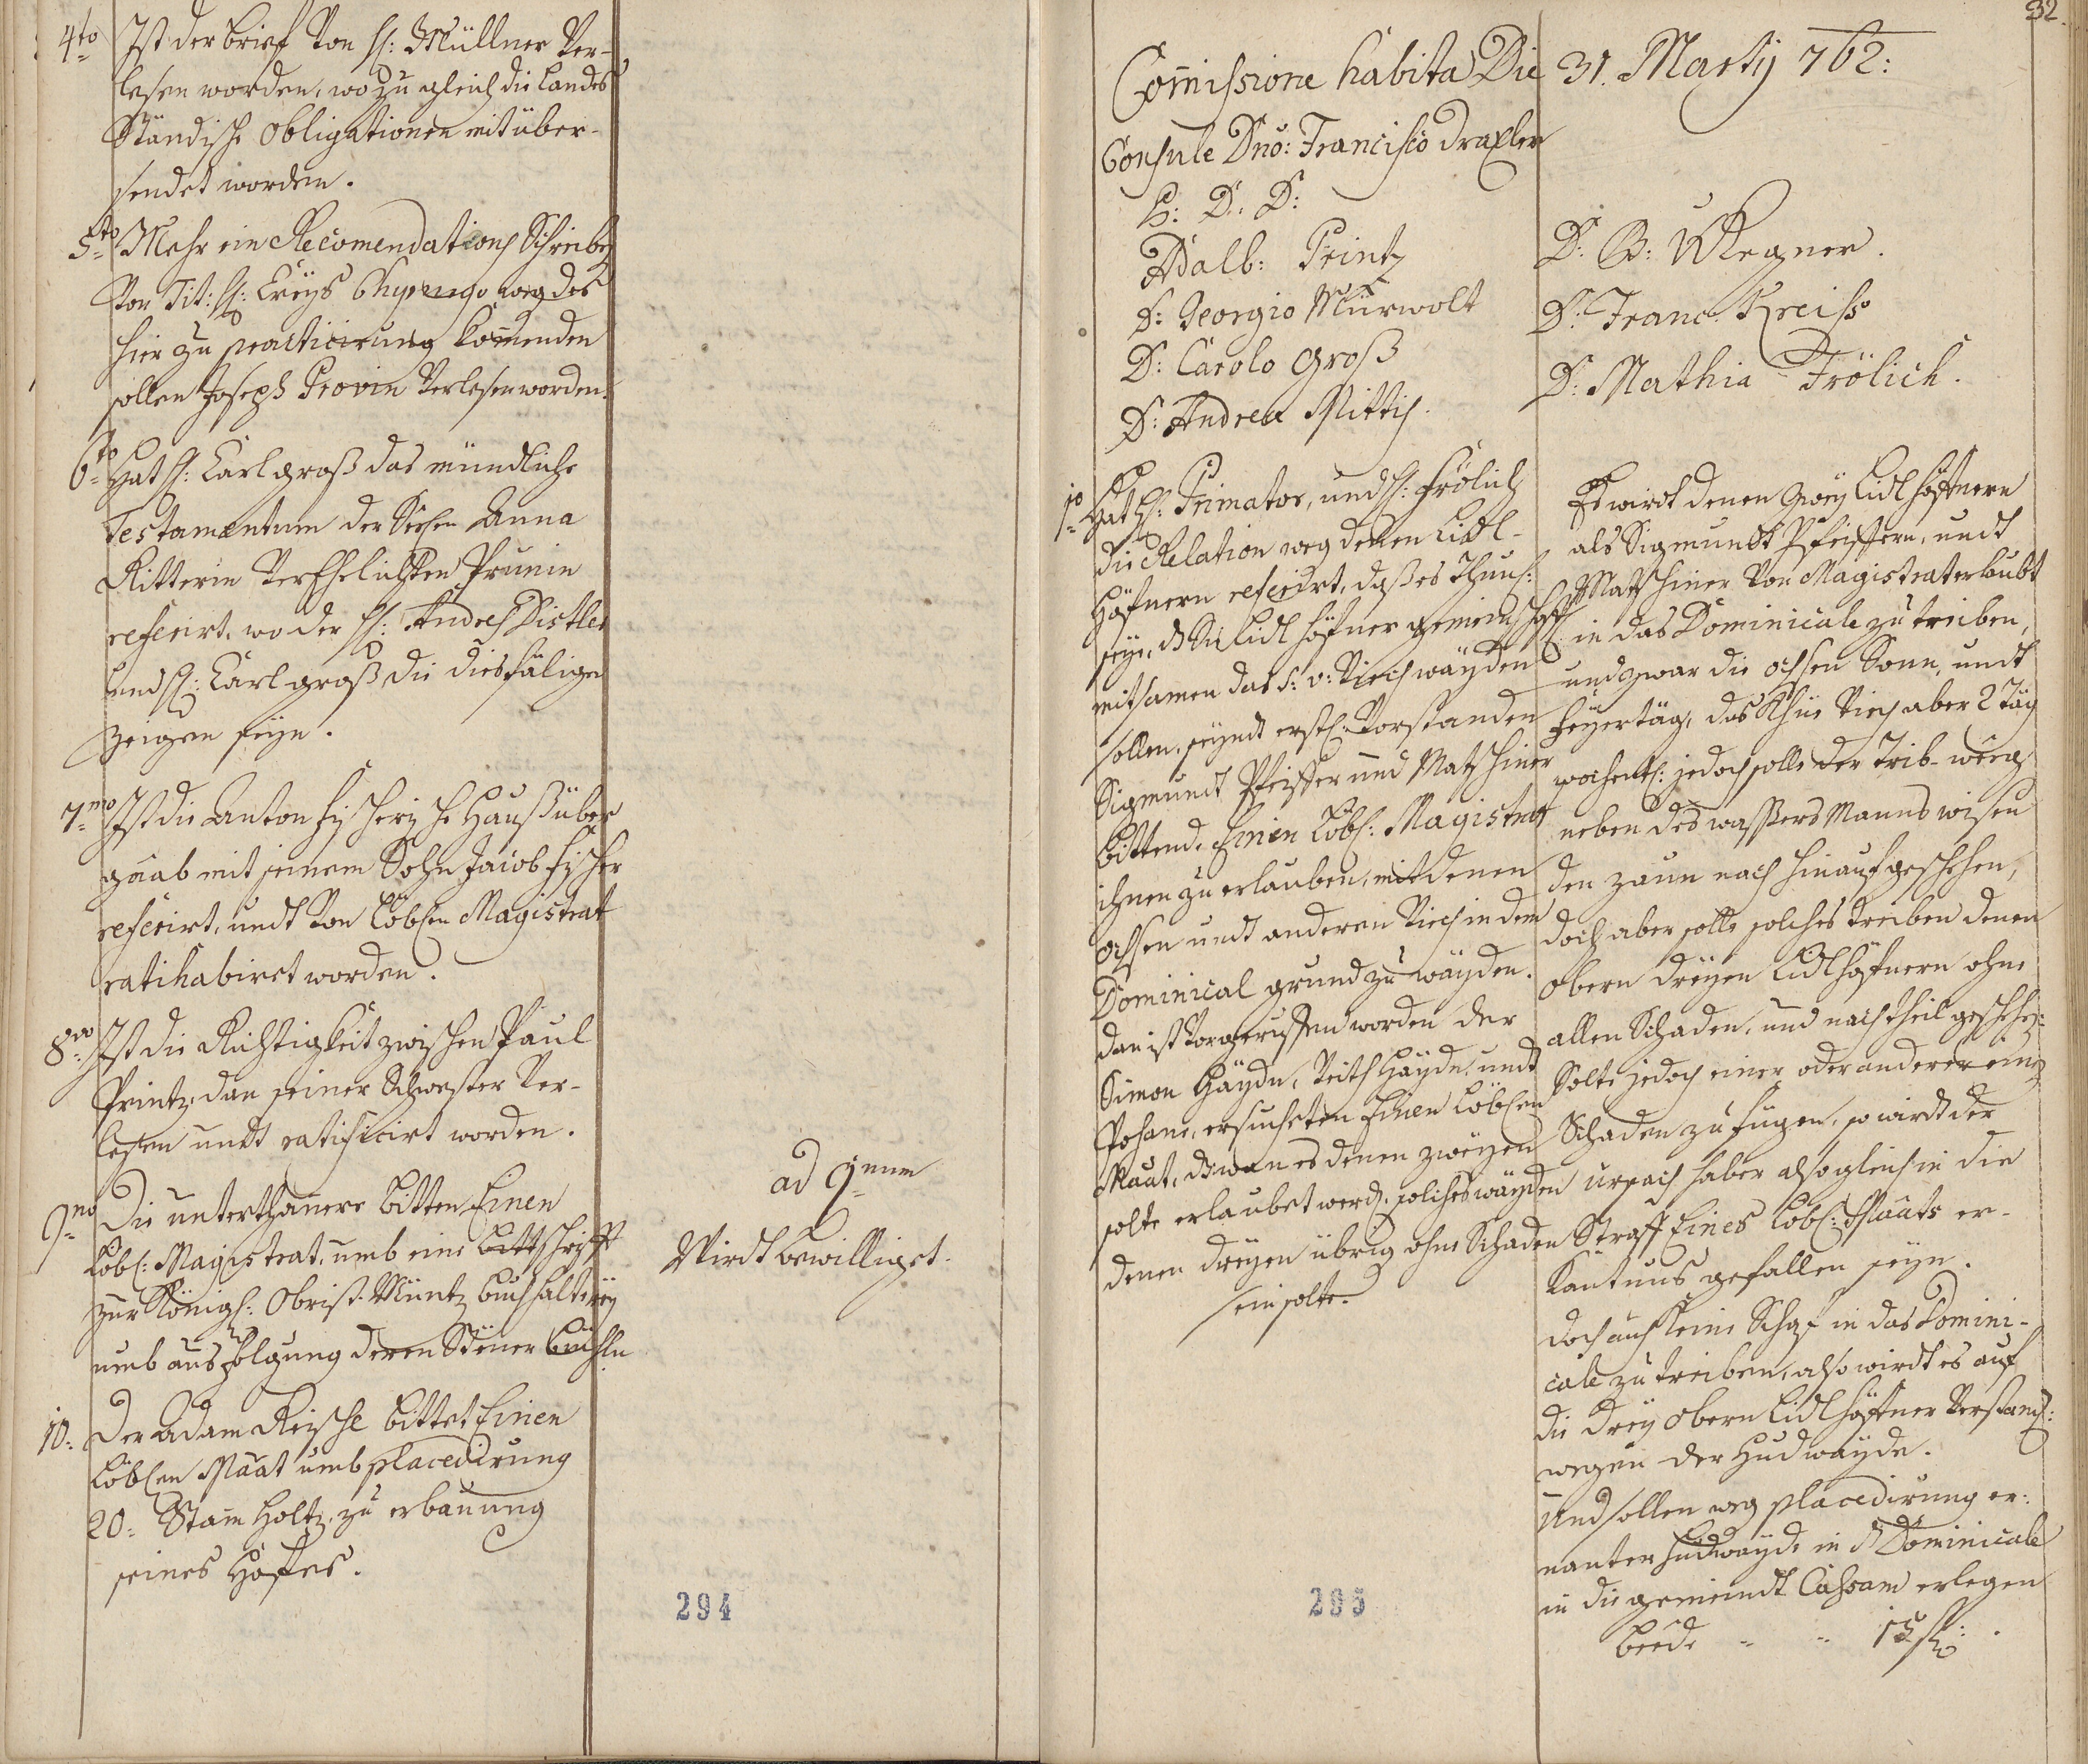 4to Ist der brief von H: Müllner ver-
lesen worden, wo zu gleich die Landes
Ständische Obligationen mit über-
sendet worden.
5to Mehr ein Recomendations Schreiben
von Tit: H: Creys Chyrurgo weg des
hier zu practicirung komenden
sollen Joseph Provin verlesen worden.
6to Hat H: Carl Groß das mündliche
Testamentum der Anna
Ritterin verehelichten Prunin
referirt, wo der H: Andres Distler
und H: Carl Groß die diesfälige
Zeigen seyn.
7mo Ist die Anton Fischerische Hauß über
gaab mit seinem Sohn Jacob Fischer
referirt, undt von Löblen Magistrat
ratihabiret worden.
8vo Ist die Richtigkeit zwischen Paul
Printz, dan seiner Schwester ver-
lesen undt ratificirt worden.
9no Die unterthanere bitten Einen
Löbl: Magistrat, umb eine bittschrifft
zur Königl: Obrist-Müntz buchhalterey
umb ausfolgung deren Steuer büchln
10: Der Adam Reischl bittet Einen
Löblen Maat umb placedirung
20: Stam Holtz, zu erbauung
seines Hoffes.
ad 9num
Wirdt bewilliget.
294
32.
Comissione habita Die 31. Martij 762:
Consule Dno: Francisco Draxler
P: D: D:
Adalb: Printz
D: Georgio Mürwolt
D: Carolo Groß
D: Andrea Mittis.
D: B: Wegner.
D: Franc: Kreiss
D: Mathia Frölich.
1o Hat H: Primator, und H: Frölich
die Relation weg denen Lidl-
höfnern referirt, daß es thunl:
seye, d die Lidl höfner gemeinschafft
mitsamen das s: v: Viech wäyden
sollen, seyndt erstl: vorstanden
Sigmundt Pfeiffer und Matschiner
bittend, Einen Löbl: Magistrat
ihnen zu erlauben, mit denen
ochsen undt anderen Viech in dem
Dominical grund zu wäyden.
dan ist vorgeruffen worden der
Simon Häyde, Veith Häyde, undt
Pohane, ersucheten Einen Löblen
Maat, d wan es denen zweyen
solte erlaubet werd, solches wäyden
denen dreyen übrig ohne Schaden
sein solte.
295
Es wirdt denen zwey Lidlhöffnern
als Sigmundt Pfeiffern, undt
Matschiner von Magistrat erlaubt
in das Dominicale zu treiben,
und zwar die ochsen Sonn, undt
Feyertäg, das Khüe Viech aber 2 Täg
wochentl: jedoch solle der Trib-weeg
neben des wassers Manns wisen
den zaun nach hinauf geschehen,
doch aber solle solches treiben denen
obern dreyen Lidlhöfnern ohne
allen Schaden, und nachtheil geschehen:
Solte jedoch einer oder anderer einen
Schaden zu fügen, so wirdt der
ursach haber also gleich in die
Straff Eines Löbl: Maats er-
kantnus gefallen seyn.
doch auch keine Schaf in das Domini-
cale zu treiben, also wirdt es auf
die drey obern Lidlhöffner verstand:
wegen der Hudwäyde.
Und sollen weg placedirung er-
nanter Hudwäyde in d Dominicale
in die gemeindt Cassam erlegen
beede - - 15 fl: